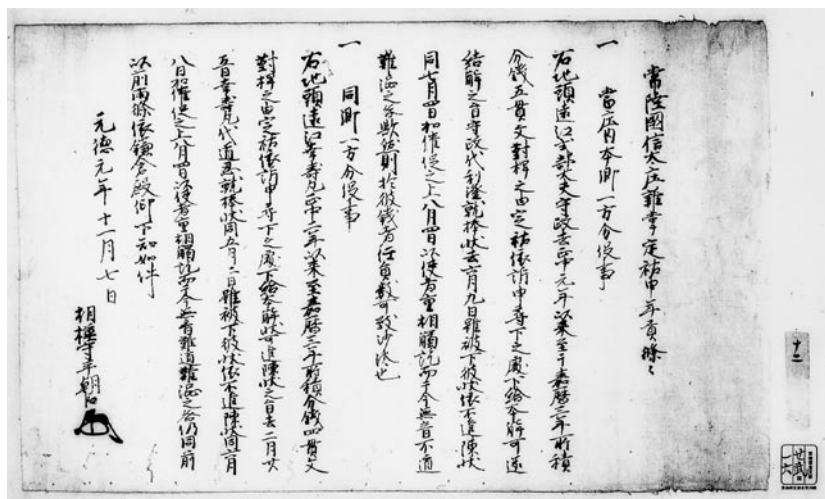 常陸國信太庄雜掌定祐申年貢條々
一 當庄内本郷一方分役事
右地頭遠江式部大夫守政去正中元年以来至于嘉暦三年所積
分錢五貫文對捍之由定祐依訴申尋下之處下給本解可送
結解之旨守政代利隆就捧状去六月九日雖被下彼状依不進陳状
同七月四日加催促之上八月四日以使者重相觸訖而于今無音不遁
難澁之咎歟然則於彼錢者任員數可致沙汰也
一 同郷一方分役事
右地頭遠江幸壽丸正中二年以来至嘉暦三年所積分錢四貫文
對捍之由定祐依訴申尋下之處下給本解状可進陳状之旨去二月廿
五日幸壽丸代道忍就捧状同五月二日雖被下彼状依不進陳状同六月
八日加催促之上八月四日以使者重相觸訖而于今無音難遁難澁之咎仍同前
以前兩條依鎌倉殿仰下知如件
元徳元年十一月七日
相模守平朝臣
十二